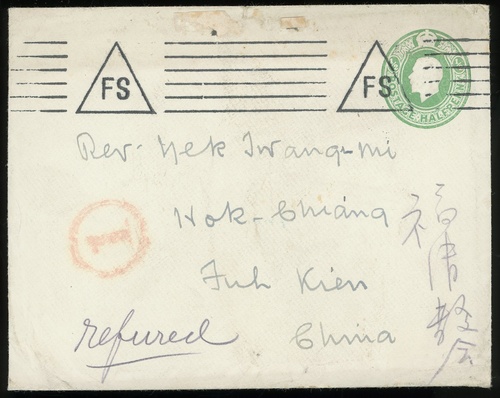 FS FS
POSTAGE HALFPENNY
Rev. Yek Twang-mi
Hok-Chiang
Fuh Kien
China
福清教会
1
refused